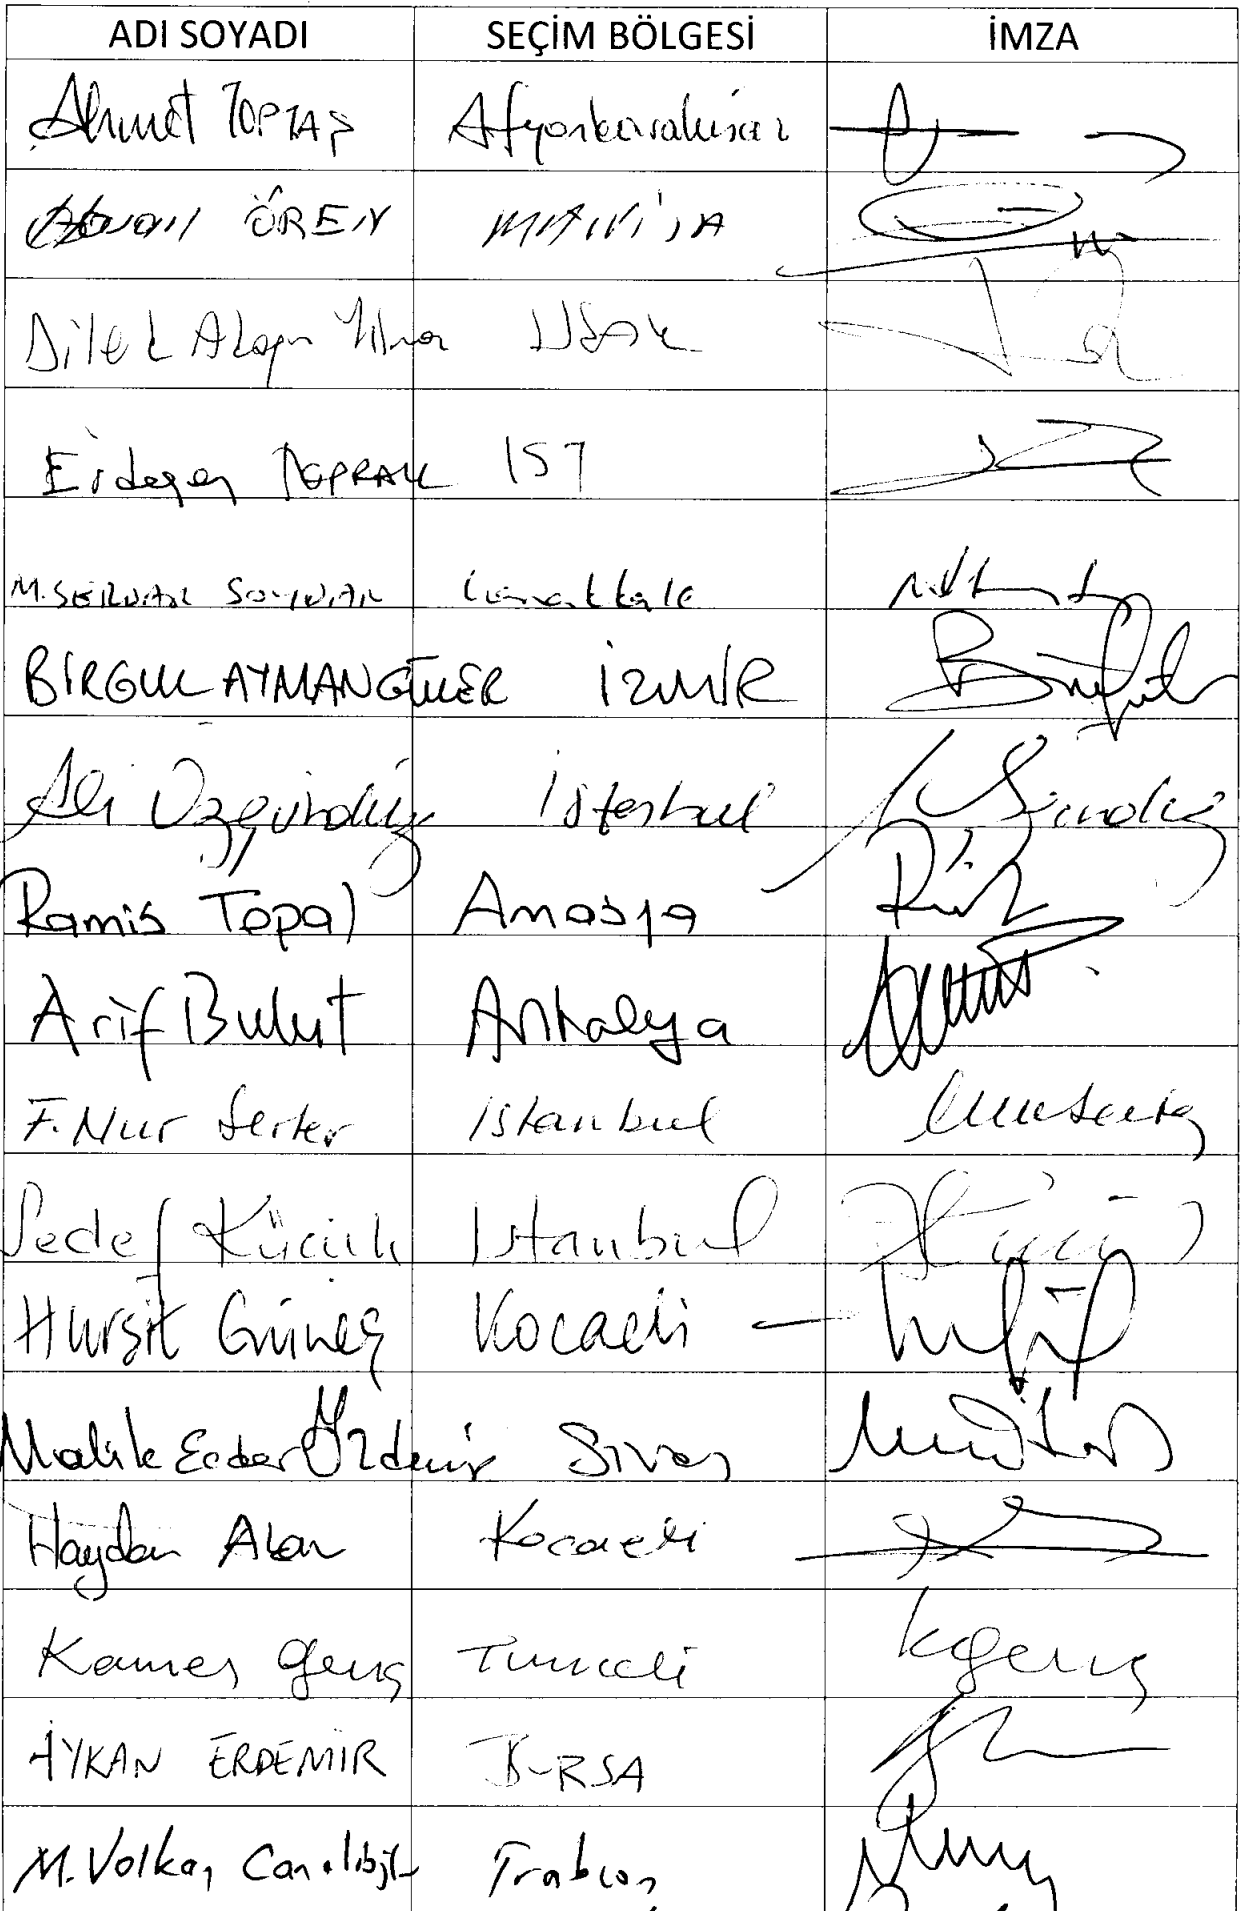 ADI SOYADI SEÇİM BÖLGESİ İMZA
Ahmet TOPTAŞ Afyonkarahisar
ÖREN MANİSA
Dilek Akagün Yılmaz UŞAK
Erdoğan TOPRAK İST
M. SERDAR SOYDAN Çanakkale
BİRGÜL AYMAN GÜLER İZMİR
Ali Özgündüz İstanbul
Ramis Topal Amasya
Arif Bulut Antalya
F. Nur Serter İstanbul
Sedef Küçük İstanbul
Hurşit Güneş Kocaeli
Malik Ecder Özdemir Sivas
Haydar Akar Kocaeli
Kamer Genç Tunceli
AYKAN ERDEMİR BURSA
M. Volkan Canalioğlu Trabzon